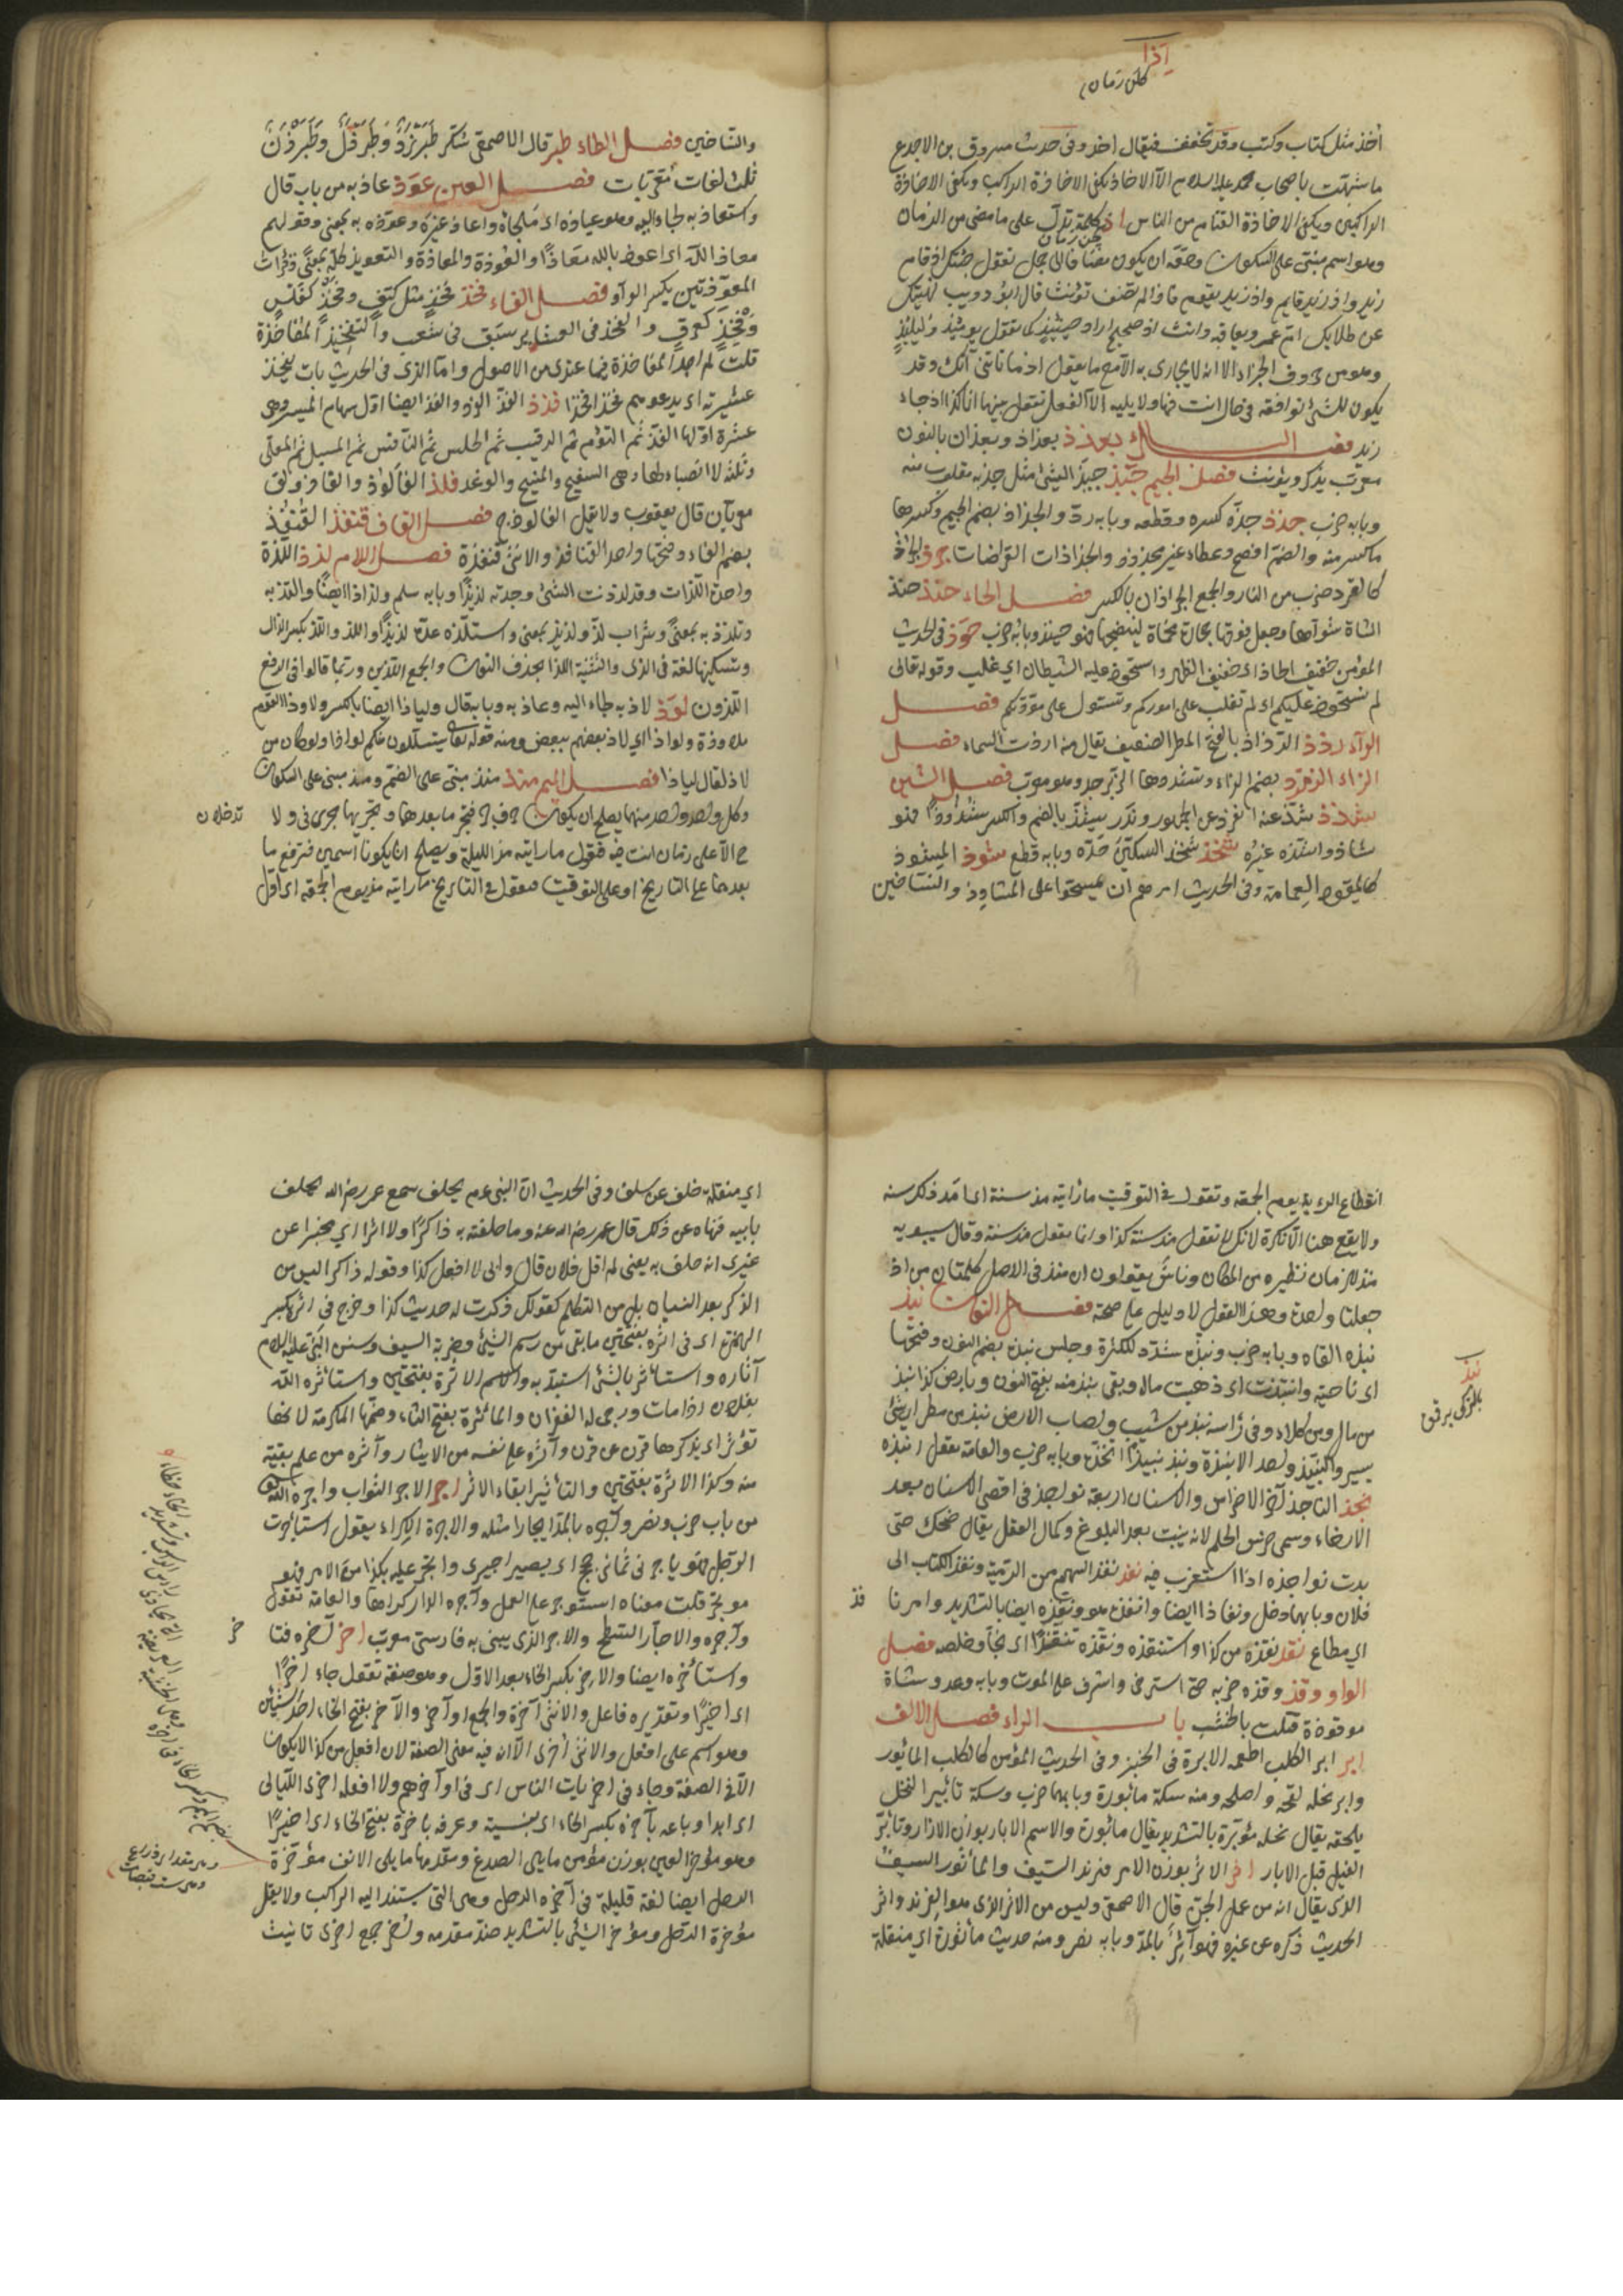 إذا
أخذ مثل كتاب وكتب وقد تخفف فيقال اخذ وفى حديث مسروق بن الاجدع
ما شبهت باصحاب محمد عليه السلام الا الاخاذ تكفى الاخاذة الراكب وتكفى الاخاذة
الراكبين وتكفى الاخاذة الفئام من الناس اذ كلمة تدل على ما مضى من الزمان
وهو اسم مبنى على السكون وحقه ان يكون مضافا الى جملة تقول جئتك اذ قام
زيد واذ زيد قايم واذ زيد يقوم فاذا لم تضف تؤنث قال ابو ذويب نهيتك
عن طلابك ام عمرو بعاقبة وانت اذ صحيح اراد حينئذ كما تقول يومئذ وليلتئذ
وهو من حروف الجزاء الا انه لا يجازى به الا مع ما يقول اذ ما تأتنى آتك وقد
يكون للشئ توافقه فى حال انت فيها ولا يليه الا الفعل تقول بينما انا كذا اذ جاء
زيد فصل الباء بغدذ بغداد وبغدان بالنون
معرب يذكر ويؤنث فصل الجيم جبذ جبذ الشئ مثل جذبه مقلوب منه
وبابه ضرب جذذ جذه كسره وقطعه وبابه رد والجذاذ بضم الجيم وكسرها
ما كسر منه والضم افصح وعطاء غير مجذوذ والجذاذات القراضات جرذ الجرذ
كالصرد ضرب من الفار والجمع الجرذان بالكسر فصل الحاء حنذ حنذ
الشاة شواها وجعل فوقها حجارة محماة لينضجها فهو حنيذ وبابه ضرب حوذ فى الحديث
المؤمن خفيف الحاذ اى خفيف الظهر واستحوذ عليه الشيطان اي غلب وقوله تعالى
الم نستحوذ عليكم اى لم نغلب على اموركم ونستول على مودتكم فصل
الراء رذذ الرذاذ بالفتح المطر الضعيف يقال منه ارذت السماء فصل
الزاء الزمرذ بضم الزاء وتشديدها الزبرجد وهو معرب فصل الشين
شذذ شذ عنه انفرد عن الجمهور وندر يشذ بالضم والكسر شذوذا فهو
شاذ واشذه غيره شحذ شحذ السكين حده وبابه قطع شوذ المشوذ
كالمقود العمامة وفى الحديث امرهم ان يمسحوا على المشاوذ والتساخين
والتساخين فصل الطاء طبر قال الاصمعى سكر طبرزد وطبرزل وطبرزن
ثلث لغات معربات فصل العين عوذ عاذ به من باب قال
واستعاذ به لجاء اليه وهو عياذه اى ملجأه واعاذ غيره وعوذه به بمعنى وقولهم
معاذ الله اى اعوذ بالله معاذا والعوذة والمعاذة والتعويذ كله بمعنى وقرأت
المعوذتين بكسر الواو فصل الفاء فخذ فخذ مثل كتف وفخذ كفلس
وفخذ كعرق والفخذ فى العشاير سبق فى شعب والتفخيذ المفاخذة
قلت لم اجد المفاخذة فيما عندى من الاصول واما الذى فى الحديث بات يفخذ
عشيرته اى يدعوهم فخذا فخذا فذذ الفذ الفرد والفذ ايضا اول سهام الميسر وهى
عشرة اولها الفذ ثم التوءم ثم الرقيب ثم الحلس ثم النافس ثم المسبل ثم المعلى
وثلثة لا انصباء لها وهى السفيح والمنيح والوغد فلذ الفالوذ والفالوذق
معربان قال يعقوب ولا يقل الفالوذج فصل القاف قنفذ القنفذ
بضم الفاء وفتحها واحد القنافذ والانثى قنفذة فصل اللام لذذ اللذة
واحدة اللذات وقد لذذت الشئ وجدته لذيذا وبابه سلم ولذاذا ايضا والتذ به
وتلذذ به بمعنى وشراب لذ ولذيذ بمعنى واستلذه عده لذيذا واللذ واللذ بكسر الذال
وتسكينها لغة فى الذى والتثنية اللذا بحذف النون والجمع الذين وربما قالوا فى الرفع
اللذون لوذ لاذ به لجاء اليه وعاذ به وبابه قال ولياذا ايضا بالكسر ولاوذ القوم
ملاوذة ولواذا اي لاذ بعضهم ببعض ومنه قوله تعالى يتسللون منكم لواذا ولو كان من
لاذ لقال لياذا فصل الميم منذ منذ مبنى على الضم ومذ مبنى على السكون
وكل واحد منهما يصلح ان يكون حرف جر فتجر ما بعدهما وتجريها مجرى فى ولا
ح الا على زمان انت فيه فتقول ما رايته مذ الليلة ويصلح ان يكونا اسمين فترفع ما
بعدهما على التاريخ او على التوقيت فتقول فى التاريخ ما رايته مذ يوم الجمعة اى اول
تدخلان
انقطاع الرؤية يوم الجمعة وتقول فى التوقيت ما رأيته مذ سنة اى امد ذلك سنة
ولا يقع ههنا الا نكرة لانك لا تقول مذ سنة كذا وانما يقول مذ سنة وقال سيبويه
منذ للزمان نظيره من المكان وناس يقولون ان منذ فى الاصل كلمتان من اذ
جعلتا واحدة وهذا القول لا دليل على صحته فصل النون نبذ
نبذه القاه وبابه ضرب ونبذه شدد للكثرة وجلس نبذة بضم النون وفتحها
اى ناحية وانتبذت اى ذهبت ماله وبقى نبذ منه بفتح النون وبارض كذا نبذ
من مال ومن كلاء وفى رأسه نبذ من شيب واصاب الارض نبذ من مطر اي شئ
يسير والنبيذ واحد الانبذة ونبذ نبيذا اتخذه وبابه ضرب والعامة تقول انبذه
نجذ الناجذ آخر الاضراس وللانسان اربعة نواجذ فى اقصى الاسنان بعد
الارحاء وسمى ضرس الحلم لانه ينبت بعد البلوغ وكمال العقل يقال ضحك حتى
بدت نواجذه اذا استغرب فيه نفذ نفذ السهم من الرمية ونفذ الكتاب الى
فلان وبابهما دخل ونفاذا ايضا وانفذه هو ونفذه ايضا بالتشديد وامرنا
اى مطاع نقذ انقذه من كذا واستنقذه ونقذه تنقيذا اى نجاه وخلصه فصل
الواو وقذ وقذه ضربه حتى استرخى واشرف على الموت وبابه وعد وشاة
موقوذة قتلت بالخشب باب الراء فصل الالف
ابر ابر الكلب اطعمه الابرة فى الخبز وفى الحديث المؤمن كالكلب المأبور
وابر نخله لقحه واصلحه ومنه سكة مأبورة وبابهما ضرب وسكة تأبير النخل
يلحقه يقال نخلة مؤبرة بالتشديد يقال مأبورة والاسم الابار بوزن الازار وتأبر
الفسيل قبل الابار اثر الاثر بوزن الامر فرند السيف والمأثور السيف
الذى يقال انه من عمل الجن قال الاصمعى وليس من الاثر الذى هو الفرند واثر
الحديث ذكره عن غيره فهو آثر بالمد وبابه نصر ومنه حديث مأثور اي منقلة
نبذ
اي منقلة خلف عن سلف وفى الحديث ان النبى عم يحلف سمع عمر رضى الله يحلف
بابيه فنهاه عن ذلك قال عمر رضى الله عنه وما حلفت به ذاكرا ولا اثرا اي مخبرا عن
غيرى انه حلف به يعنى لم اقل فلان قال وابى لا افعل كذا وقوله ذاكرا ليس من
الذكر بعد النسيان بل من التكلم كقولك ذكرت له حديث كذا وخرج فى اثره بكسر
الهمزة اى فى اثره بفتحتين ما بقى من رسم الشئ وضربة السيف وسنن النبى عليه السلام
آثاره واستأثر بالشئ استبد به والاسم الاثرة بفتحتين واستأثر الله
بفلان اذا مات ورجى له الغفران والمأثرة بفتح الثاء وضمها المكرمة لانها
تؤثر اى يذكرها قرن عن قرن وآثره على نفسه من الايثار وأثره من علم بقية
منه وكذا الاثرة بفتحتين والتأثير ابقاء الاثر اجر الاجر الثواب واجره الله
من باب ضرب ونصر وآجره بالمد ايجارا مثله والاجرة الكراء يقول استأجرت
الرجل فهو ياجرنى ثمانى حجج اى يصير اجيرى وائتجر عليه بكذا من الاجر فهو
مؤتجر قلت معناه استوجر على العمل وآجره الدار اكراها والعامة تقول
وآجره والاجار السطح والاجر الذى يبنى به فارسى معرب اخر اخره فتأ
واستأخر ايضا والآخر بكسر الخاء بعد الاول وهو صفة تقول جاء اخرا
اى اخيرا وتقديره فاعل والانثى آخرة والجمع اواخر والآخر بفتح الخاء احد الشيئين
وهو اسم على افعل والانثى اخرى الا ان فيه معنى الصفة لان افعل من كذا لا يكون
الا فى الصفة وجاء فى اخريات الناس اى فى اواخرهم ولا افعله اخرى الليالى
اى ابدا وباعه بآخرة بكسر الخاء اى بنسية وعرفه باخرة بفتح الخاء اى اخيرا
وهو مؤخر العين بوزن مؤمن ما يلى الصدغ ومقدمها ما يلى الانف مؤخرة
الرحل ايضا لغة قليلة فى آخرة الرحل وهى التى يستند اليه الراكب ولا يقل
مؤخرة الرحل ومؤخر الشئ بالتشديد ضد مقدمه واخر جمع اخرى تانيث